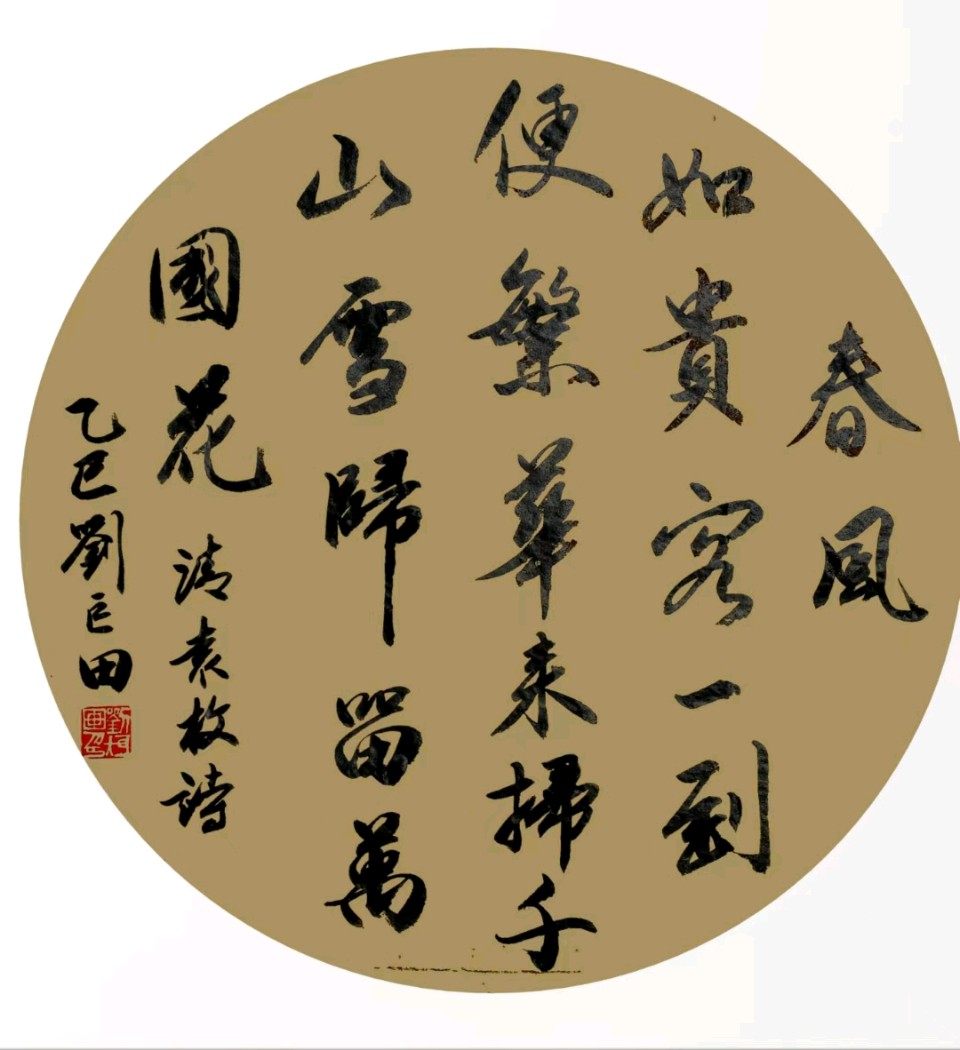 春風
如貴客一到
便繁華来掃千
山雪歸留萬
國花 清袁枚詩
乙巳劉巨田